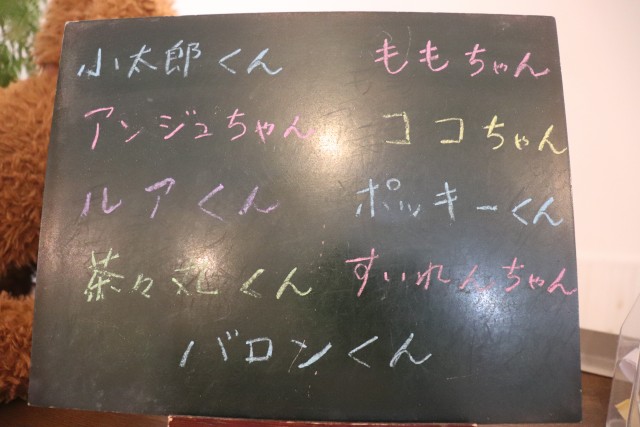 小太郎くん ももちゃん
アンジュちゃん ココちゃん
ルアくん ポッキーくん
茶々丸くん すいれんちゃん
バロンくん